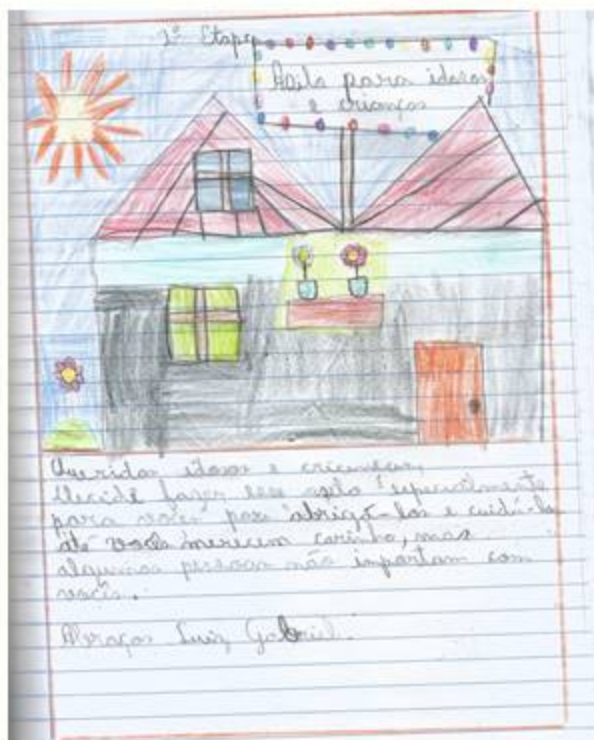 2ª Etapa
Asilo para idosos
e crianças
Queridos idosos e crianças,
decidi fazer esse asilo especialmente
para vocês para abrigá-los e cuidá-los
até vocês merecem carinho, mas
algumas pessoas não inportam com
vocês.
Abraços Luiz Gabriel.